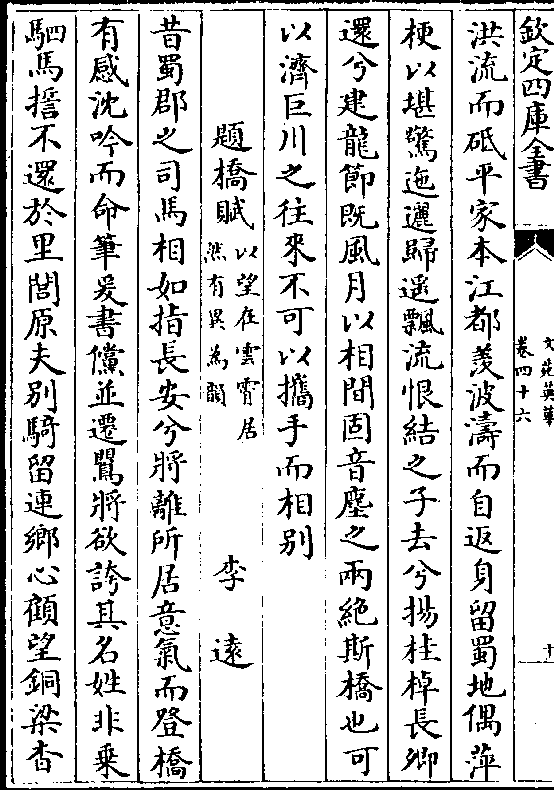 欽定四庫全書
文苑英華
卷四十六
十
洪流而砥平家本江都羨波濤而自返身留蜀地偶萍
梗以堪驚迤邐歸遥飄流恨結之子去兮揚桂棹長卿
還兮建龍節既風月以相間固音塵之兩絶斯橋也可
以濟巨川之往來不可以攜手而相别
題橋賦
以望在雲霄居
然有異為韻
李遠
昔蜀郡之司馬相如指長安兮將離所居意氣而登橋
有感沈吟而命筆爰書儻並遷鸎將欲誇其名姓非乗
駟馬誓不還於里閭原夫别騎留連鄉心顧望銅梁杳